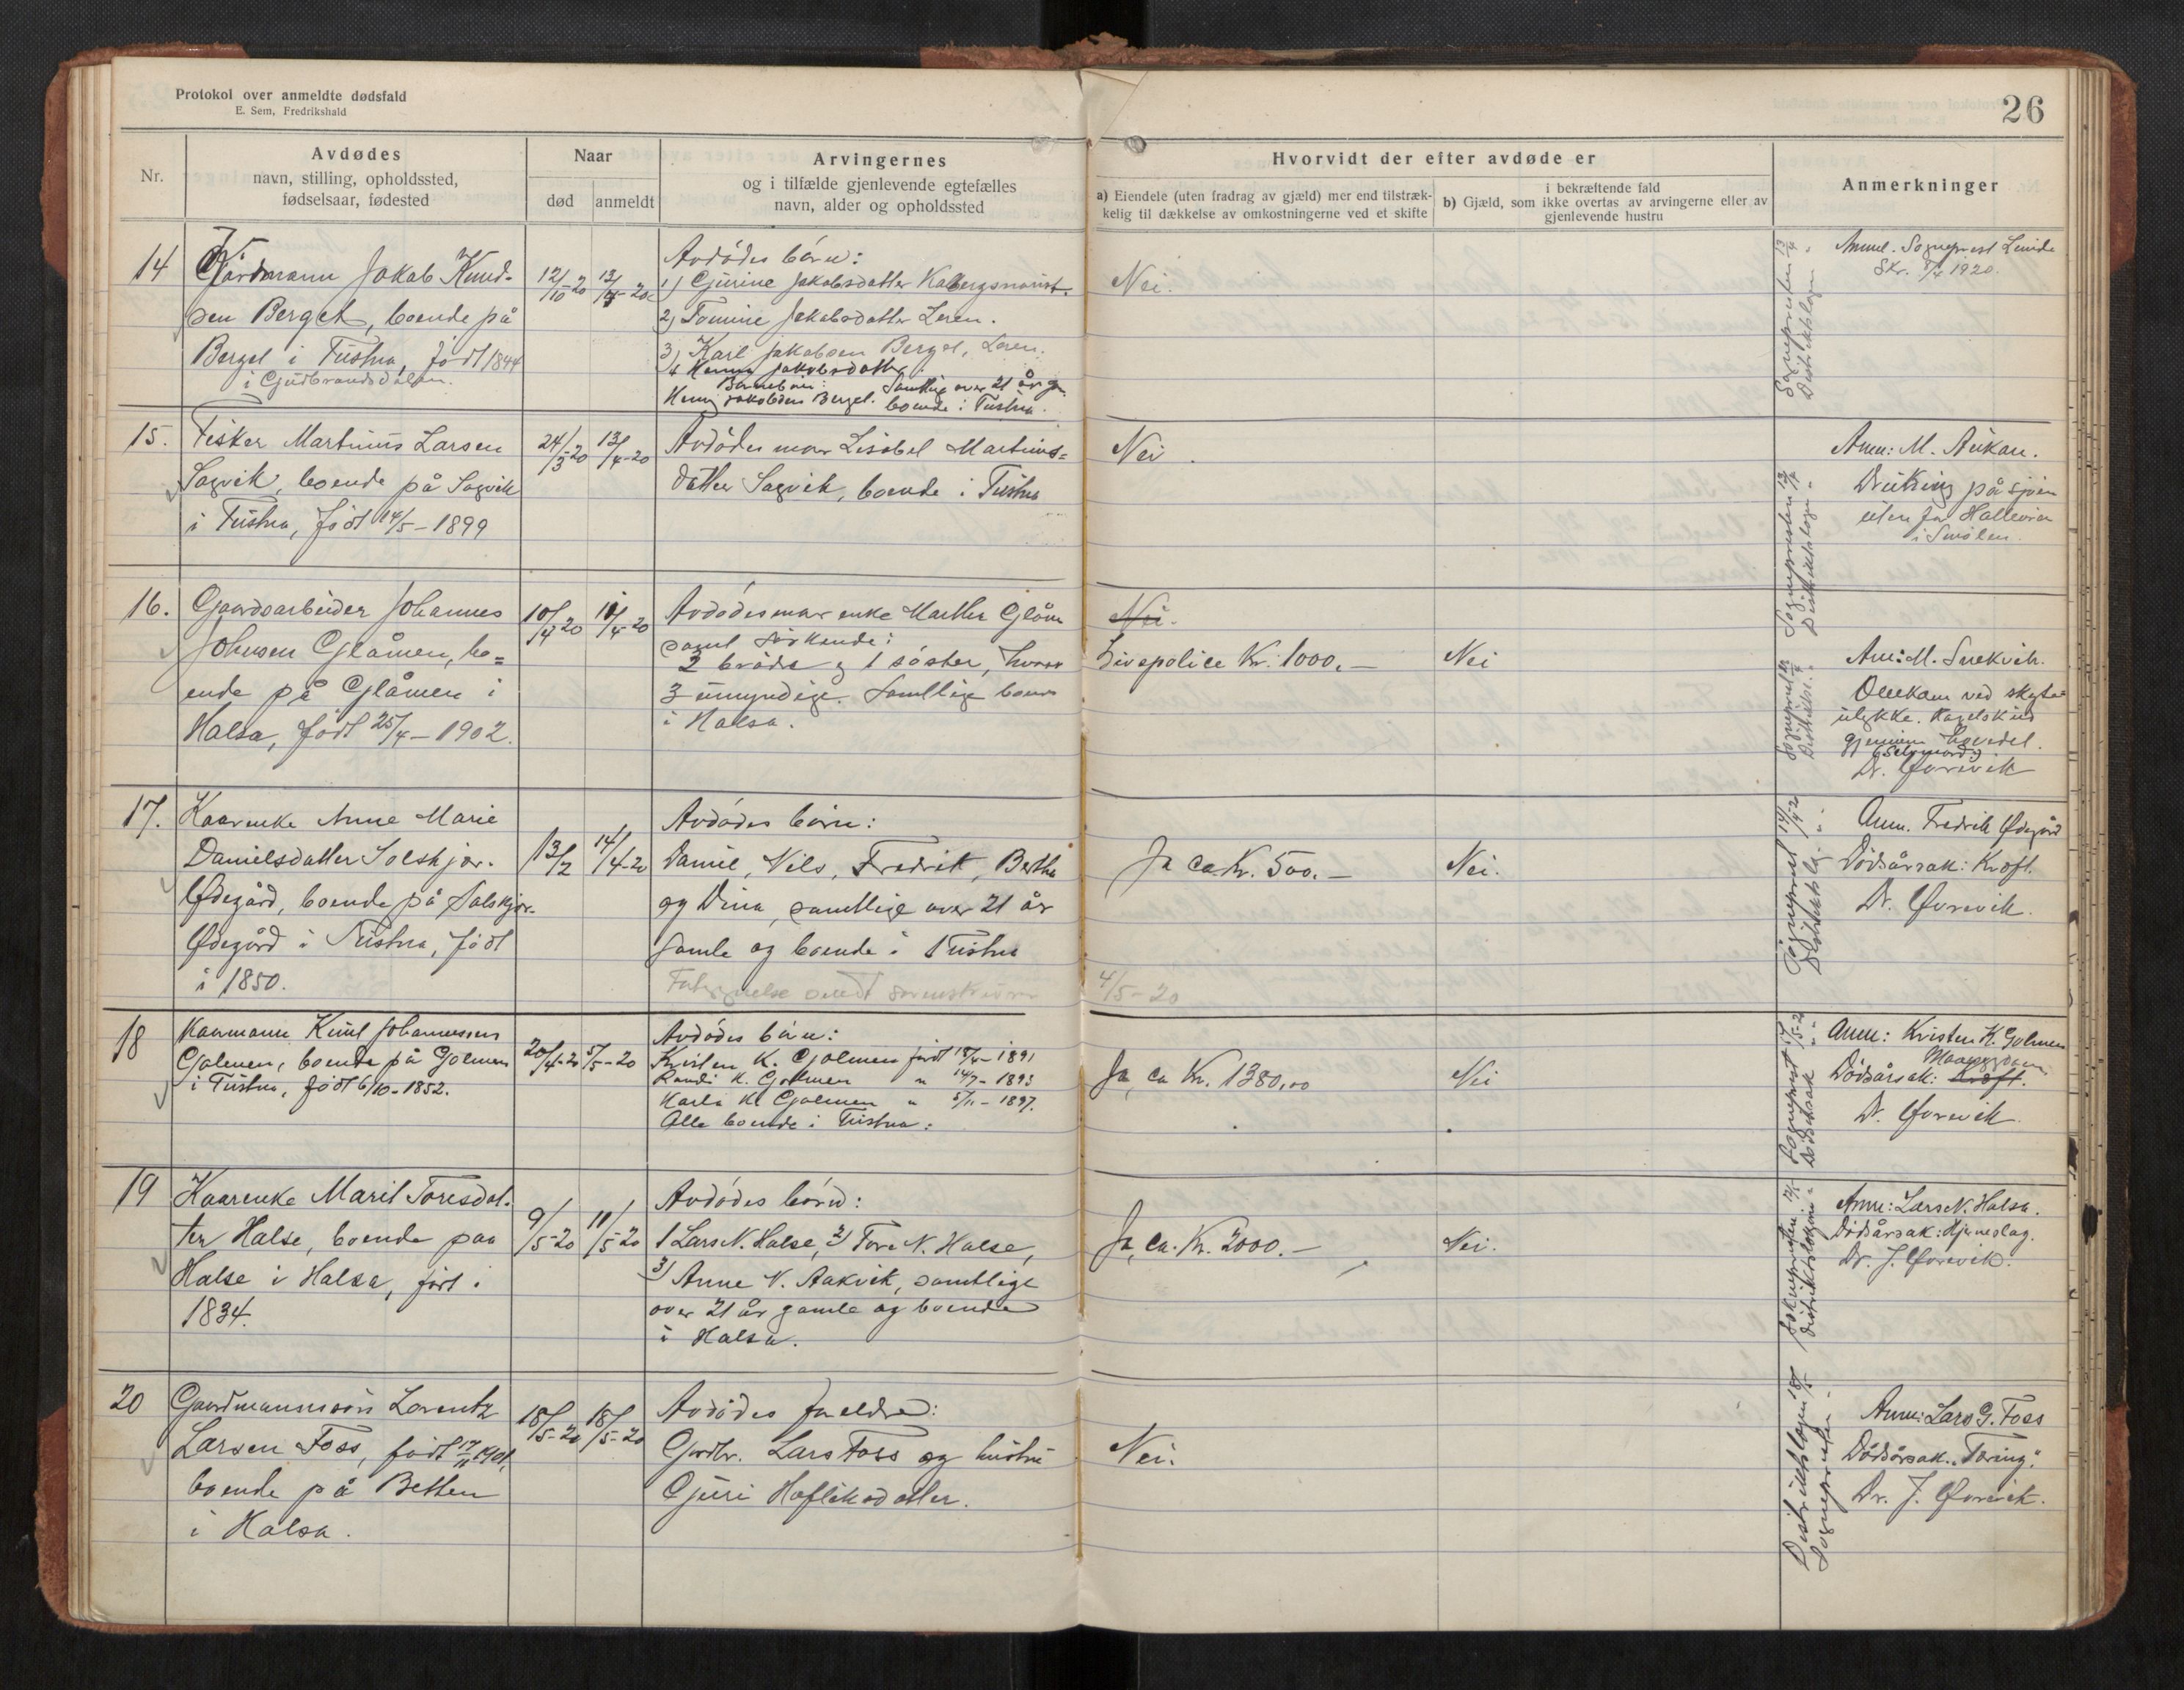 Protokol over anmeldte dødsfald
E. Sem, Fredrikshald
26
Nr.
Avdødes
navn, stilling, opholdssted,
fødselsaar, fødested
Naar
død
anmeldt
Arvingernes
og i tilfælde gjenlevende egtefælles
navn, alder og opholdssted
Hvorvidt der efter avdøde er
a) Eiendele (uten fradrag av gjæld) mer end tilstræk-
kelig til dækkelse av omkostningerne ved et skifte
i bekræftende fald
b) Gjæld, som ikke overtas av arvingerne eller av
gjenlevende hustru
Anmerkninger
14
Jakob Knud-
sen Berget, boende på
Berget i Tustna, født 1844
i Gudbrandsdalen.
12/10-20
13/4-20
Avdødes børn:
1) Gjurine Jakobsdatter
2) Tomine Jakobsdatter Leren.
3) Karl Jakobsen Berget, Leren.
4 Hanna Jakobsdatter
Barnebarn: Samtlige over 21 år og
Jakobsen Berget. boende i Tustna.
Nei.
Sognepresten 13/4
Distriktslægen "
Anmel. Sogneprest
Skr. 1920.
15.
Fisker Martinus Larsen
Sagvik, boende på Sagvik
i Tustna, født 14/5-1899
24/3-20
13/4-20
Avdødes mor Lisabel Martinus=
datter Sagvik, boende i Tustna
Nei.
Sognepresten 13/4
Distriktslægen "
Anm: M. Aukan.
Drukning på sjøen
uten for
i Smølen.
16.
Gaardsarbeider Johannes
Johnsen Glåmen, bo=
ende på Glåmen i
Halsa, født 25/4-1902.
10/4 20
Avdødes mor enke Marthe Glåm
samt søskende:
2 brødre og 1 søster, hvorav
3 umyndige. Samtlige boende
i Halsa.
Nei.
Livspolice Kr. 1000,-
Nei
Anm: M. Snekvik.
Omkom ved skyte=
ulykke.
gjennem hovedet.
(Selvmord)
Dr. Ørsvik
17.
Kaarenke Anne Marie
Danielsdatter Solskjør-
Ødegård, boende på Solskjør-
Ødegård i Tustna, født
i 1850.
13/2
14/4-20
Avdødes børn:
Daniel, Nils, Fredrik, Bertha
og Dina, samtlige over 21 år
gamle og boende i Tustna
sendt sorenskriver 4/5-20
Ja ca Kr. 500.-
Nei.
Sogneprest 14/4-20
Anm. Fredrik Ødegård
Dødsårsak: Kræft.
Dr. Ørsvik.
18
Kaarmann Knut Johannessen
Golmen, boende på Golmen
i Tustna, født 6/10-1852.
20/4-20
5/5-20
Avdødes børn:
Kristen K. Golmen født 18/4-1891
Randi K. Golmen " 14/7-1893
Karla K. Golmen " 5/11-1897.
Alle boende i Tustna.
Ja, ca Kr. 1380,00
Nei
Sogneprest 5/5-20
Anm: Kristen K. Golmen
Dødsårsak: Kræft.
Dr. Ørsvik.
19
Kaarenke Marit Toresdat-
ter Halse, boende paa
Halse i Halsa, født i
1834.
9/5-20
11/5-20
Avdødes børn:
1 Lars N. Halse, 2) Tore N. Halse,
3) Anne N. Aakvik, samtlige
over 21 år gamle og boende
i Halsa.
Ja, ca. Kr. 2000.-
Nei.
Anm: Lars N. Halsa.
Dødsårsak: Hjerneslag.
Dr. J. Ørsvik.
20
Gaardmannssøn Lorentz
Larsen Foss, født 17/11 1901,
boende på Betten
i Halsa.
18/5-20
18/5-20
Avdødes foreldre:
Gardbr. Lars Foss og hustru
Guri Hofliksdatter.
Nei.
Distriktslægen 18/5
Sognepresten "
Anm: Lars G. Foss
Dødsårsak. "Tæring".
Dr. J. Ørsvik.